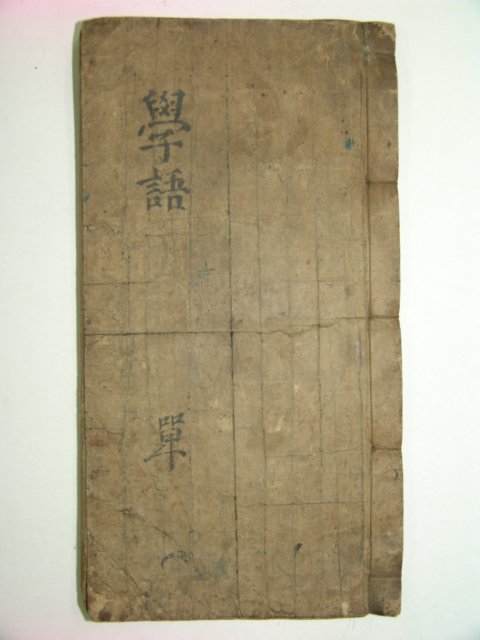 學語
單